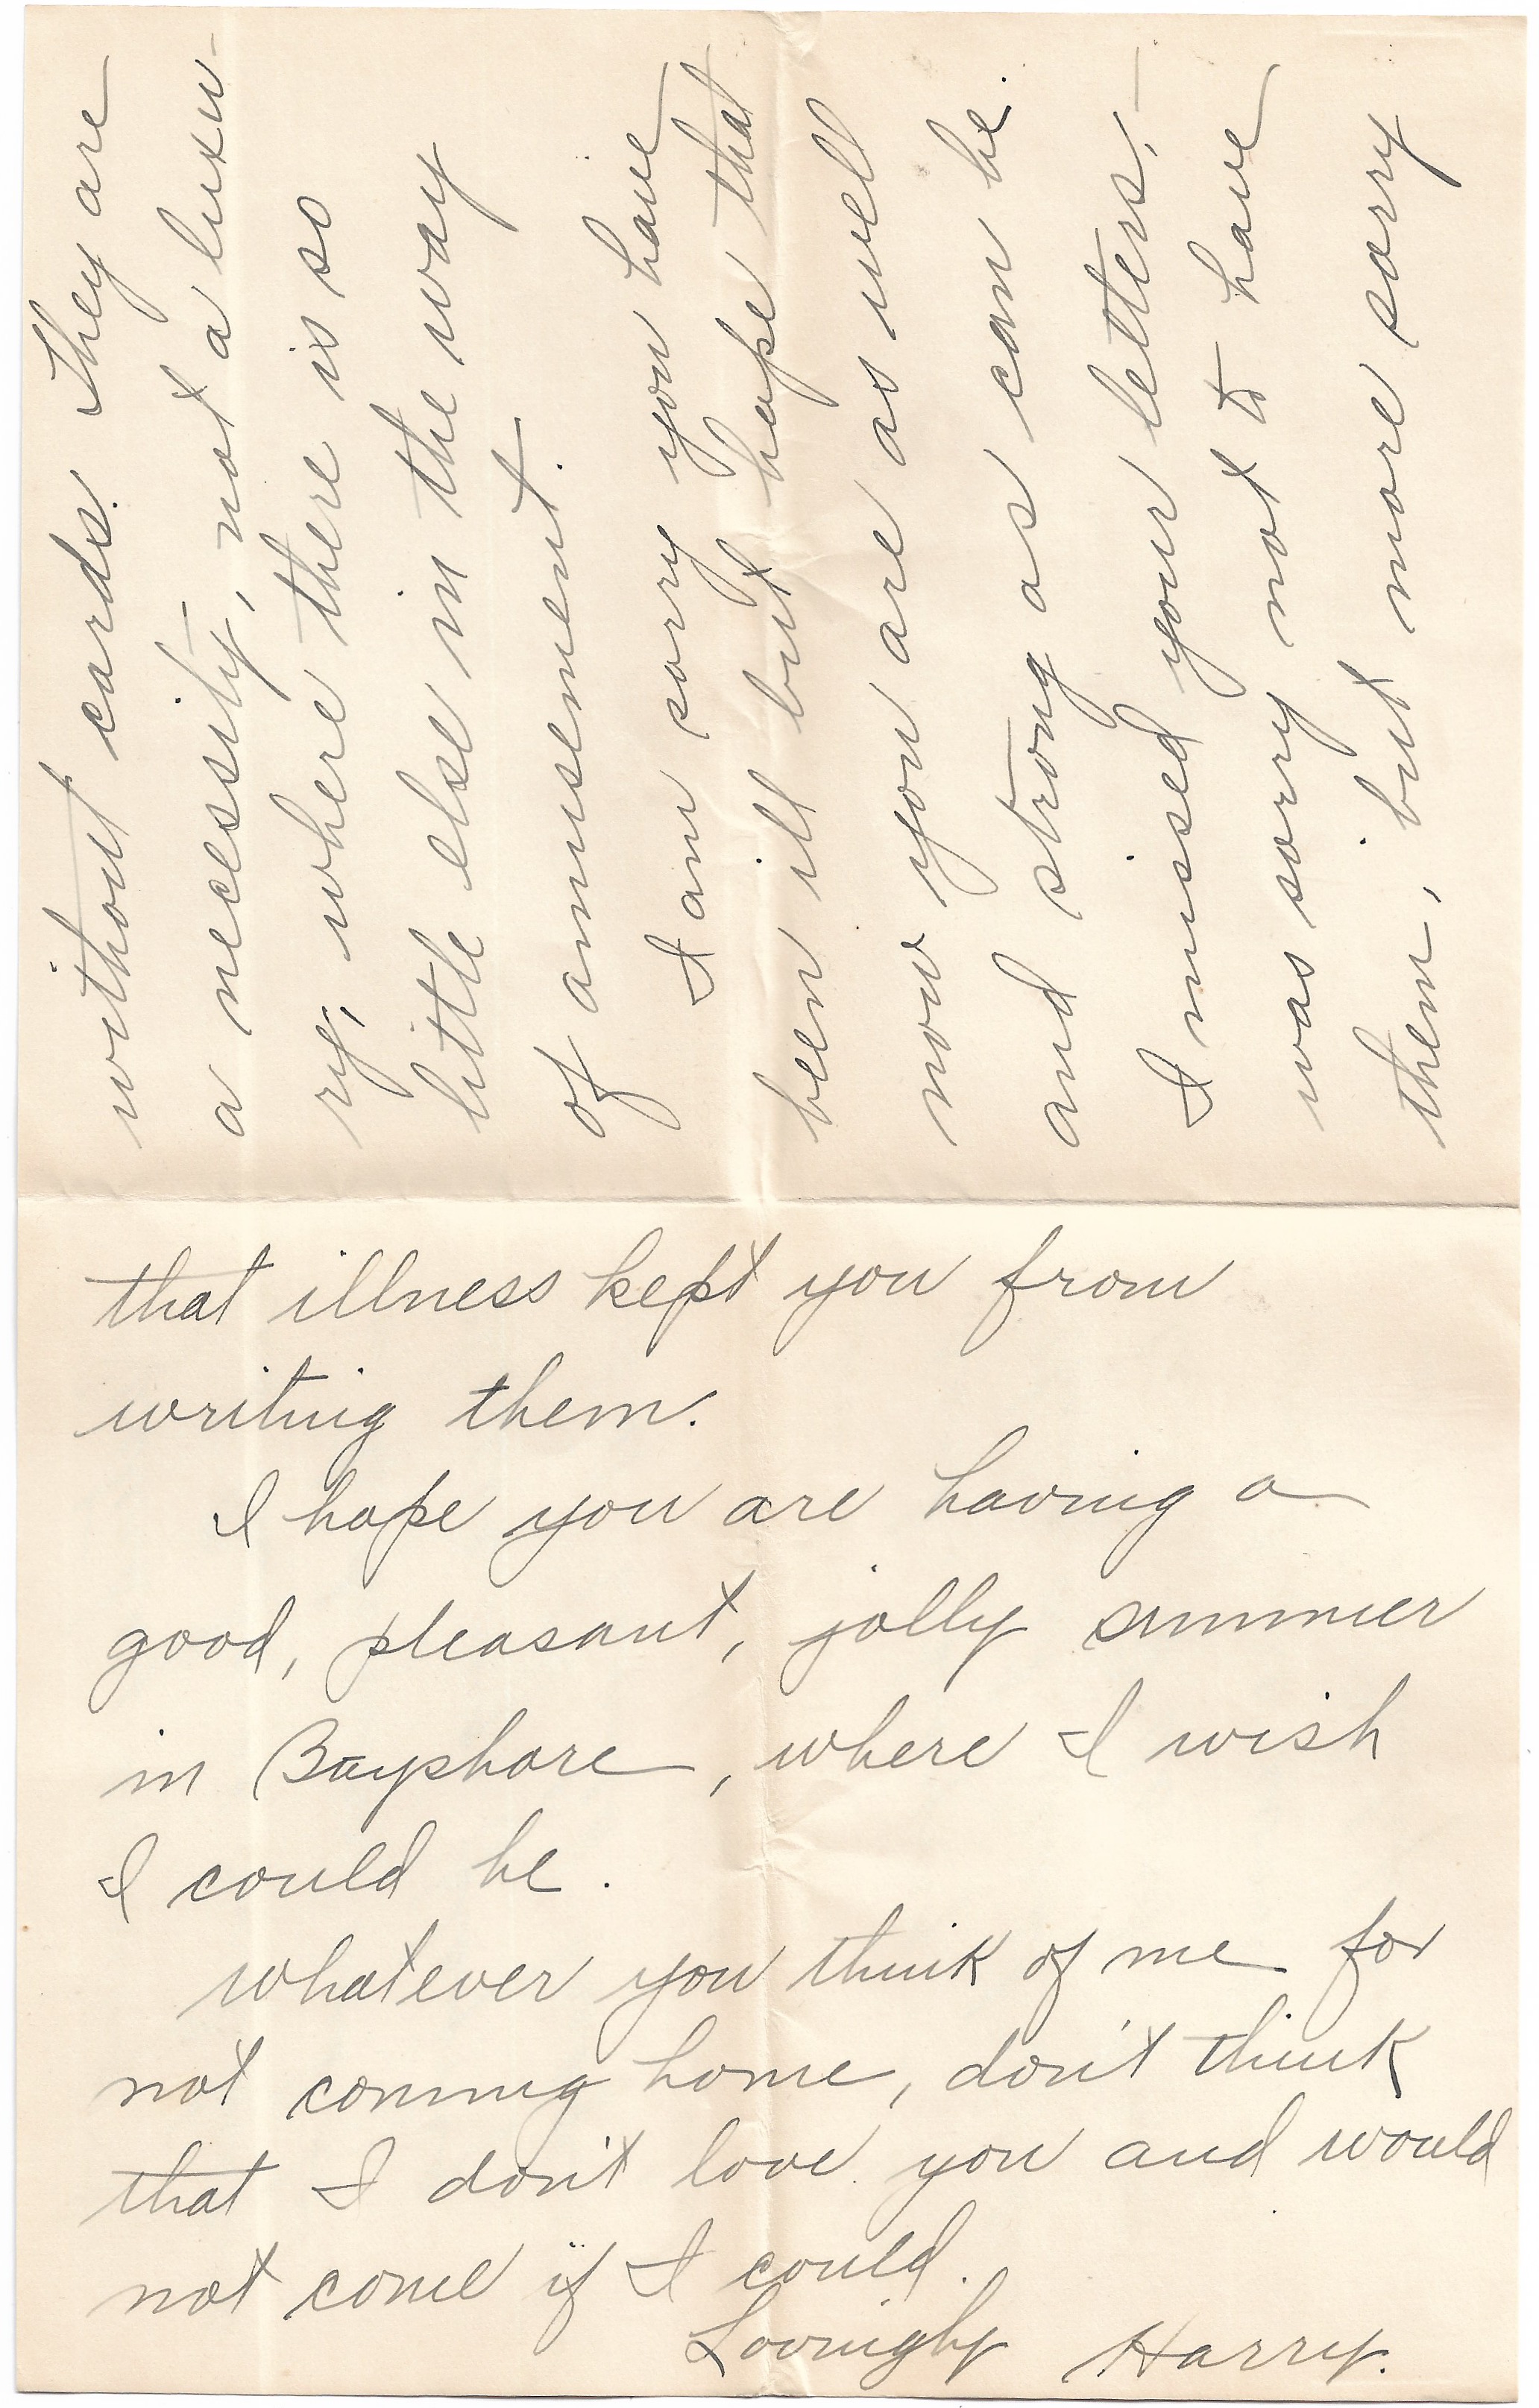 without cards. They are
a necessity, not a luxu-
ry, where there is so
little else in the way
of amusement.
I am sorry you have
been ill but hope that
now you are as well
and strong as can be.
I missed your letters, -
was sorry not to have
them, but more sorry
that illness kept you from
writing them.
I hope you are having a
good, pleasant, jolly summer
in Bayshore, where I wish
I could be.
Whatever you think of me for
not coming home, don't think
that I don't love you and would
not come if I could.
Lovingly Harry.